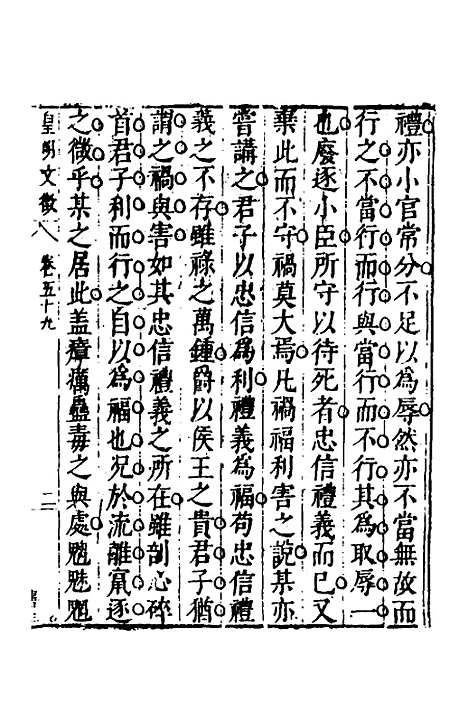 禮亦小官常分不足以為辱然亦不當無故而
行之不當行而行與當行而不行其為取辱一
也廢逐小臣所守以待死者忠信禮義而已又
棄此而不守禍莫大焉凡禍福利害之說某亦
嘗講之君子以忠信為利禮義為福苟忠信禮
義之不存雖祿之萬鍾爵以侯王之貴君子猶
謂之禍與害如其忠信禮義之所在雖剖心碎
首君子利而行之自以為福也况於流離竄逐
之微乎某之居此盖瘴癘蠱毒之與處魑魅魍
皇明文徵
卷五十九
二